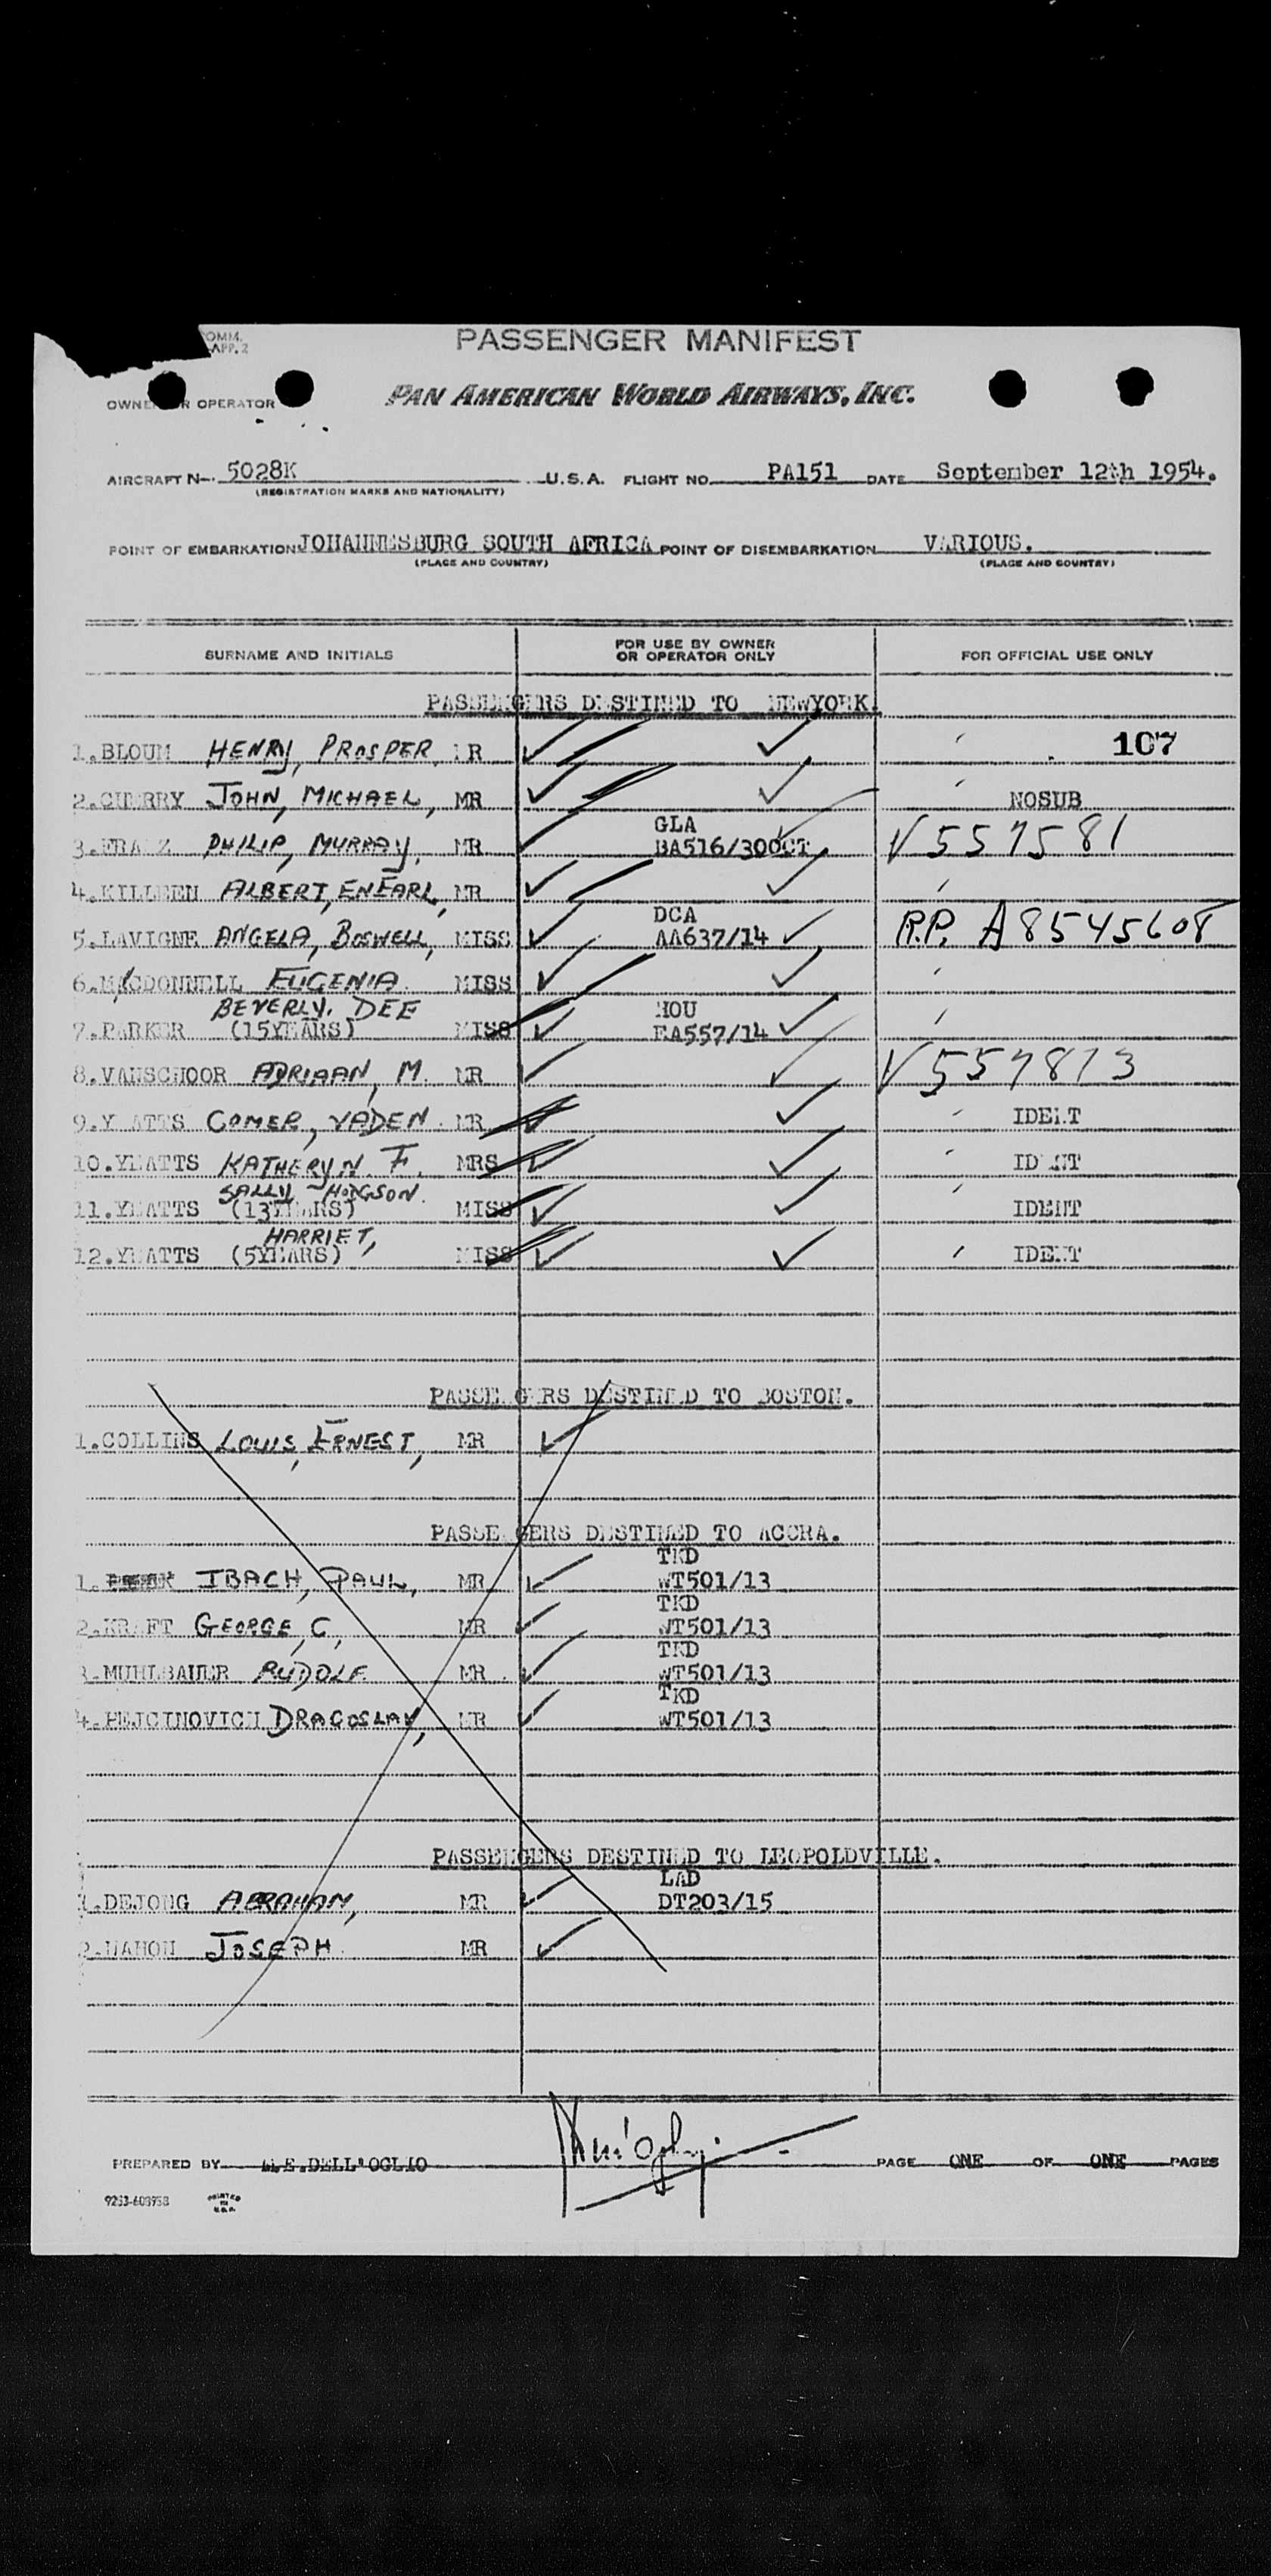 COMM.
APP. 2
PASSENGER MANIFEST
OWNER OR OPERATOR PAN AMERICAN WORLD AIRWAYS, INC.
AIRCRAFT N—. 5028K U.S.A. FLIGHT NO. PA151 DATE September 12th 1954.
(REGISTRATION MARKS AND NATIONALITY)
POINT OF EMBARKATION JOHANNESBURG SOUTH AFRICA POINT OF DISEMBARKATION VARIOUS.
(PLACE AND COUNTRY) (PLACE AND COUNTRY)
SURNAME AND INITIALS FOR USE BY OWNER OR OPERATOR ONLY FOR OFFICIAL USE ONLY
PASSENGERS DESTINED TO NEWYORK.
1.BLOUM HENRY, PROSPER, MR ✓ ✓ 107
2.CHERRY JOHN, MICHAEL, MR ✓ ✓ NOSUB
GLA
3. PHILIP, MURRAY, MR ✓ BA516/30OCT ✓ V557581
4.KILLEEN ALBERT, MR ✓ ✓
DCA
5.LAVIGNE ANGELA, BOSWELL, MISS ✓ AA637/14 ✓ R.P. A8545608
6.MACDONNELL EUGENIA MISS ✓ ✓
BEVERLY. DEE HOU
7.PARKER (15YEARS) MISS ✓ EA557/14 ✓
8.VANSCHOOR ADRIAAN, M. MR ✓ ✓ V557813
9.YEATTS COMER, VADEN. MR ✓ ✓ IDENT
10.YEATTS KATHERYN F. MRS ✓ ✓ IDENT
SALLY HODGSON.
11.YEATTS (13YEARS) MISS ✓ ✓ IDENT
HARRIET,
12.YEATTS (5YEARS) MISS ✓ ✓ IDENT
PASSENGERS DESTINED TO BOSTON.
1.COLLINS LOUIS, ERNEST, MR ✓
PASSENGERS DESTINED TO ACCRA.
TKD
1. IBACH, PAUL, MR ✓ WT501/13
TKD
2.KRAFT GEORGE, C, MR ✓ WT501/13
TKD
3.MUHLBAUER RUDOLF MR ✓ WT501/13
TKD
4.PEJCINOVICH DRAGOSLAV, MR ✓ WT501/13
PASSENGERS DESTINED TO LEOPOLDVILLE.
LAD
1.DEJONG ABRAHAM, MR ✓ DT203/15
2. JOSEPH MR ✓
PREPARED BY M.E.DELL'OGLIO PAGE ONE OF ONE PAGES
PRINTED IN U.S.A.